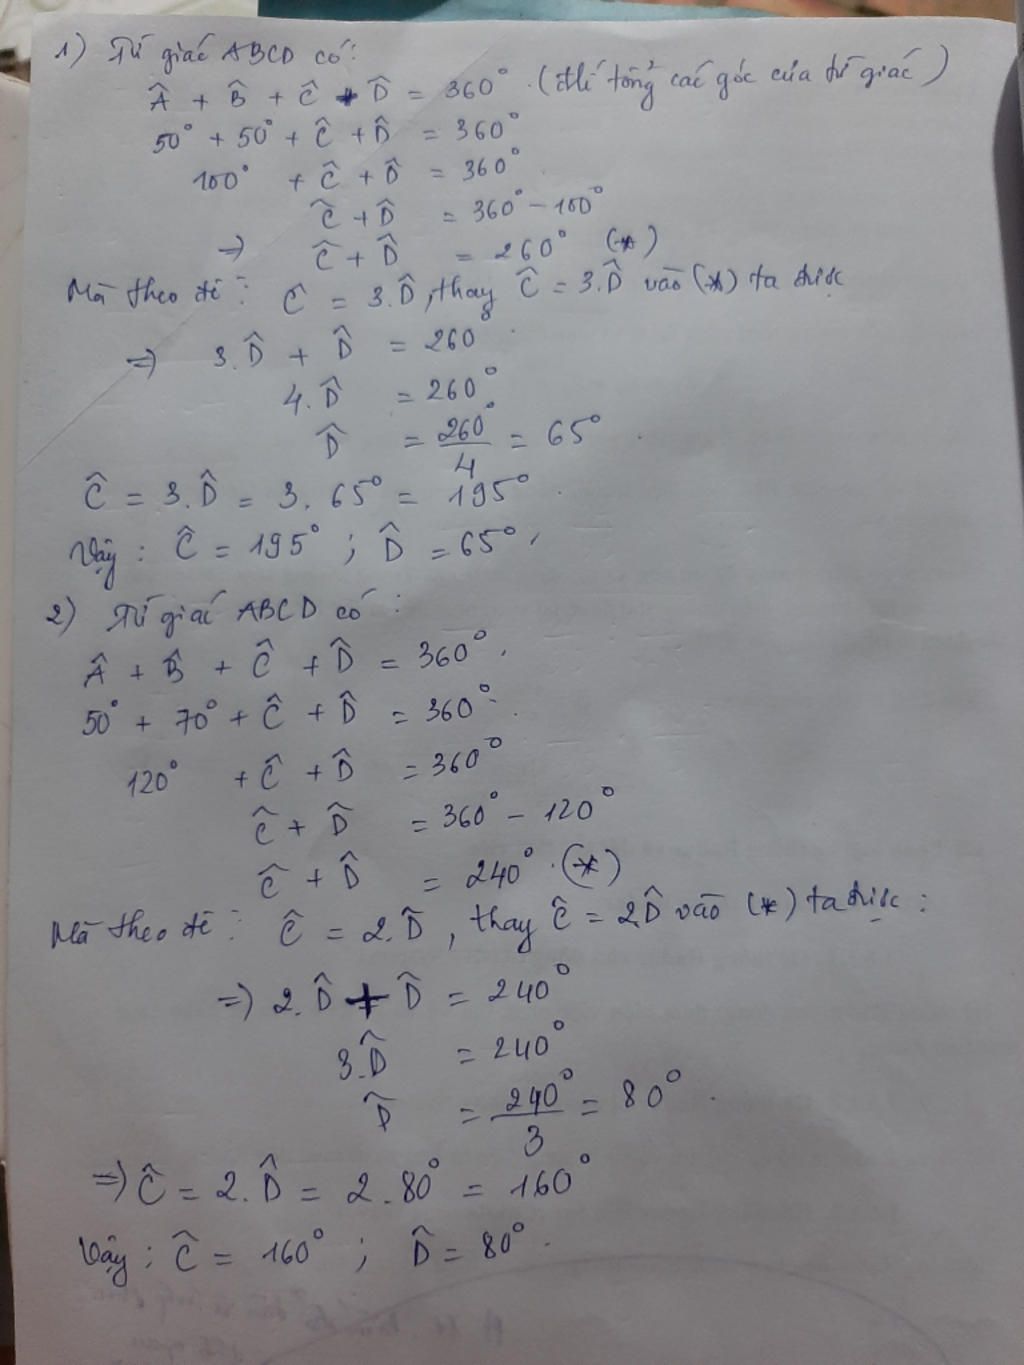 1) Tứ giác ABCD có:
Â + B̂ + Ĉ + D̂ = 360° (đl tổng các góc của tứ giác)
50° + 50° + Ĉ + D̂ = 360°
100° + Ĉ + D̂ = 360°
Ĉ + D̂ = 360° - 100°
=> Ĉ + D̂ = 260° (*)
Mà theo đề: Ĉ = 3.D̂, thay Ĉ = 3.D̂ vào (*) ta được
=> 3.D̂ + D̂ = 260
4.D̂ = 260°
D̂ = 260°/4 = 65°.
Ĉ = 3.D̂ = 3.65° = 195°.
Vậy: Ĉ = 195°; D̂ = 65°.
2) Tứ giác ABCD có:
Â + B̂ + Ĉ + D̂ = 360°.
50° + 70° + Ĉ + D̂ = 360°.
120° + Ĉ + D̂ = 360°
Ĉ + D̂ = 360° - 120°
Ĉ + D̂ = 240°. (*)
Mà theo đề: Ĉ = 2.D̂, thay Ĉ = 2D̂ vào (*) ta được:
=> 2.D̂ + D̂ = 240°
3.D̂ = 240°
D̂ = 240°/3 = 80°.
=> Ĉ = 2.D̂ = 2.80° = 160°
Vậy: Ĉ = 160°; D̂ = 80°.